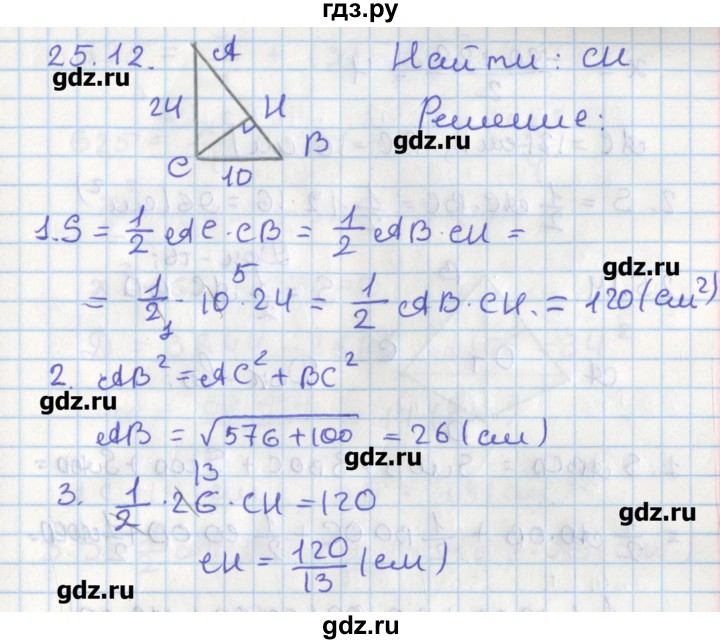 гдз.ру
25.12.
A
Найти: CH
gdz.ru
24
H
Решение:
gdz.ru
C
B
10
1. S = 1/2 AC · CB = 1/2 AB · CH =
gdz.ru
= 1/2 · 10 · 24 = 1/2 AB · CH. = 120 (см²)
5
1
2. AB² = AC² + BC²
gdz.ru
AB = √576 + 100 = 26 (см)
gdz.ru
13
3. 1/2 · 26 · CH = 120
gdz.ru
CH = 120/13 (см)
gdz.ru
gdz.ru